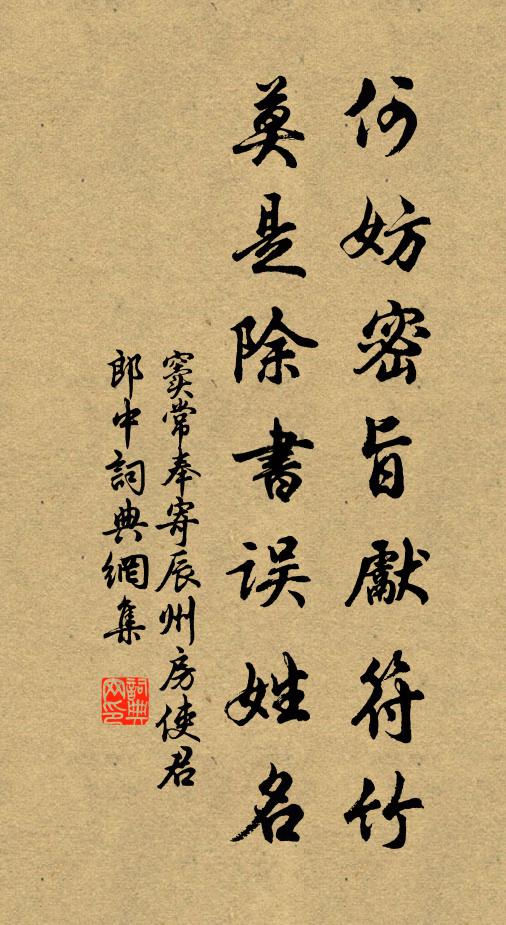 何妨密旨獻符竹
莫是除書误姓名
窦常奉寄辰州房使君
郎中詞典網集
詞典
网印